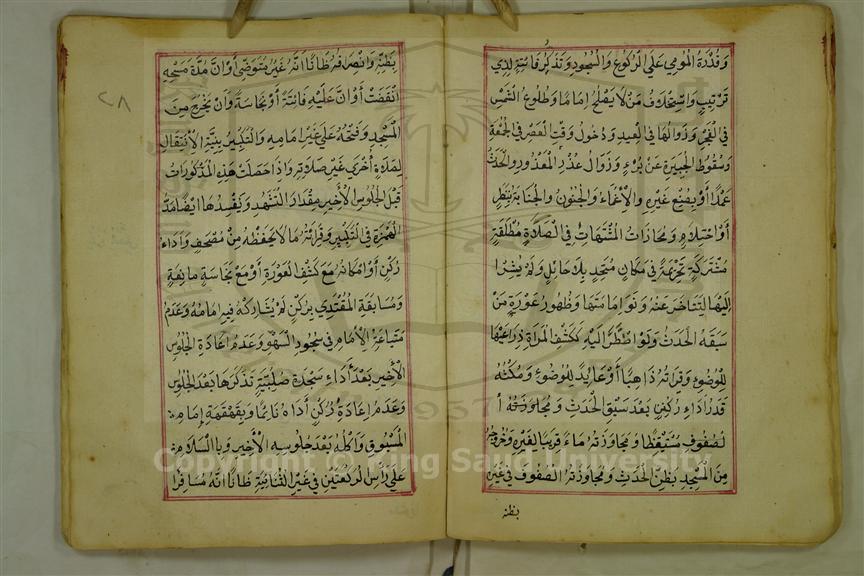 وقدرة المومي على الركوع والسجود وتذكر فائتة لذي
ترتيب واستخلاف من لا يصلح إماما وطلوع الشمس
في الفجر وزوالها في العيد ودخول وقت العصر في الجمعة
وسقوط الجبيرة عن برء وزوال عذر المعذور والحدث
عمدا أو بصنع غيره والإغماء والجنون والجنابة بنظر
أو احتلام ومحاذات المشتهات في الصلاة مطلقة
مشتركة تحريمة في مكان متحد بلا حائل ولم يشر
إليها لتتأخر عنه ونوى امامتها وظهور عورة من
سبقه الحدث ولو اضطر اليه ككشف المرأة ذراعيها
للوضوء وقراته ذاهبا أو عائدا للوضوء ومكثه
قدر اداء ركن بعد سبق الحدث ومجاوزته
لصفوف مستيقظا ومجاوزته ماء قريبا لغيره وخروجه
من المسجد بظن الحدث ومجاوزته الصفوف في غيره
بظنه
٢٨
بظنه وانصرافه ظانا انه غير متوضئ أو ان مدة مسحه
انقضت أو ان عليه فائتة أو نجاسة وان يخرج من
المسجد وفتحه على غير امامه والتكبير بنية الانتقال
لصلاة أخرى غير صلاته واذا حصلت هذه المذكورات
قبل الجلوس الأخير مقدار التشهد ويفسدها ايضا مد
الهمزة في التكبير وقراتة ما لا يحفظه من مصحف واداء
ركن أو امكانه مع كشف العورة أو مع نجاسة مانعة
ومسابقة المقتدي بركن لم يشاركه فيه امامه وعدم
متابعة الأمام في سجود السهو وعدم اعادة الجلوس
الأخير بعد أداء سجدة صلبية تذكرها بعد الجلوس
وعدم اعادة ركن اداه نائما وبقهقهة إمام
المسبوق واكله بعد جلوسه الأخير وبالسلام
على رأس الركعتين في غير الثنائية ظانا انه مسافرا
Copyright © King Saud University
1957